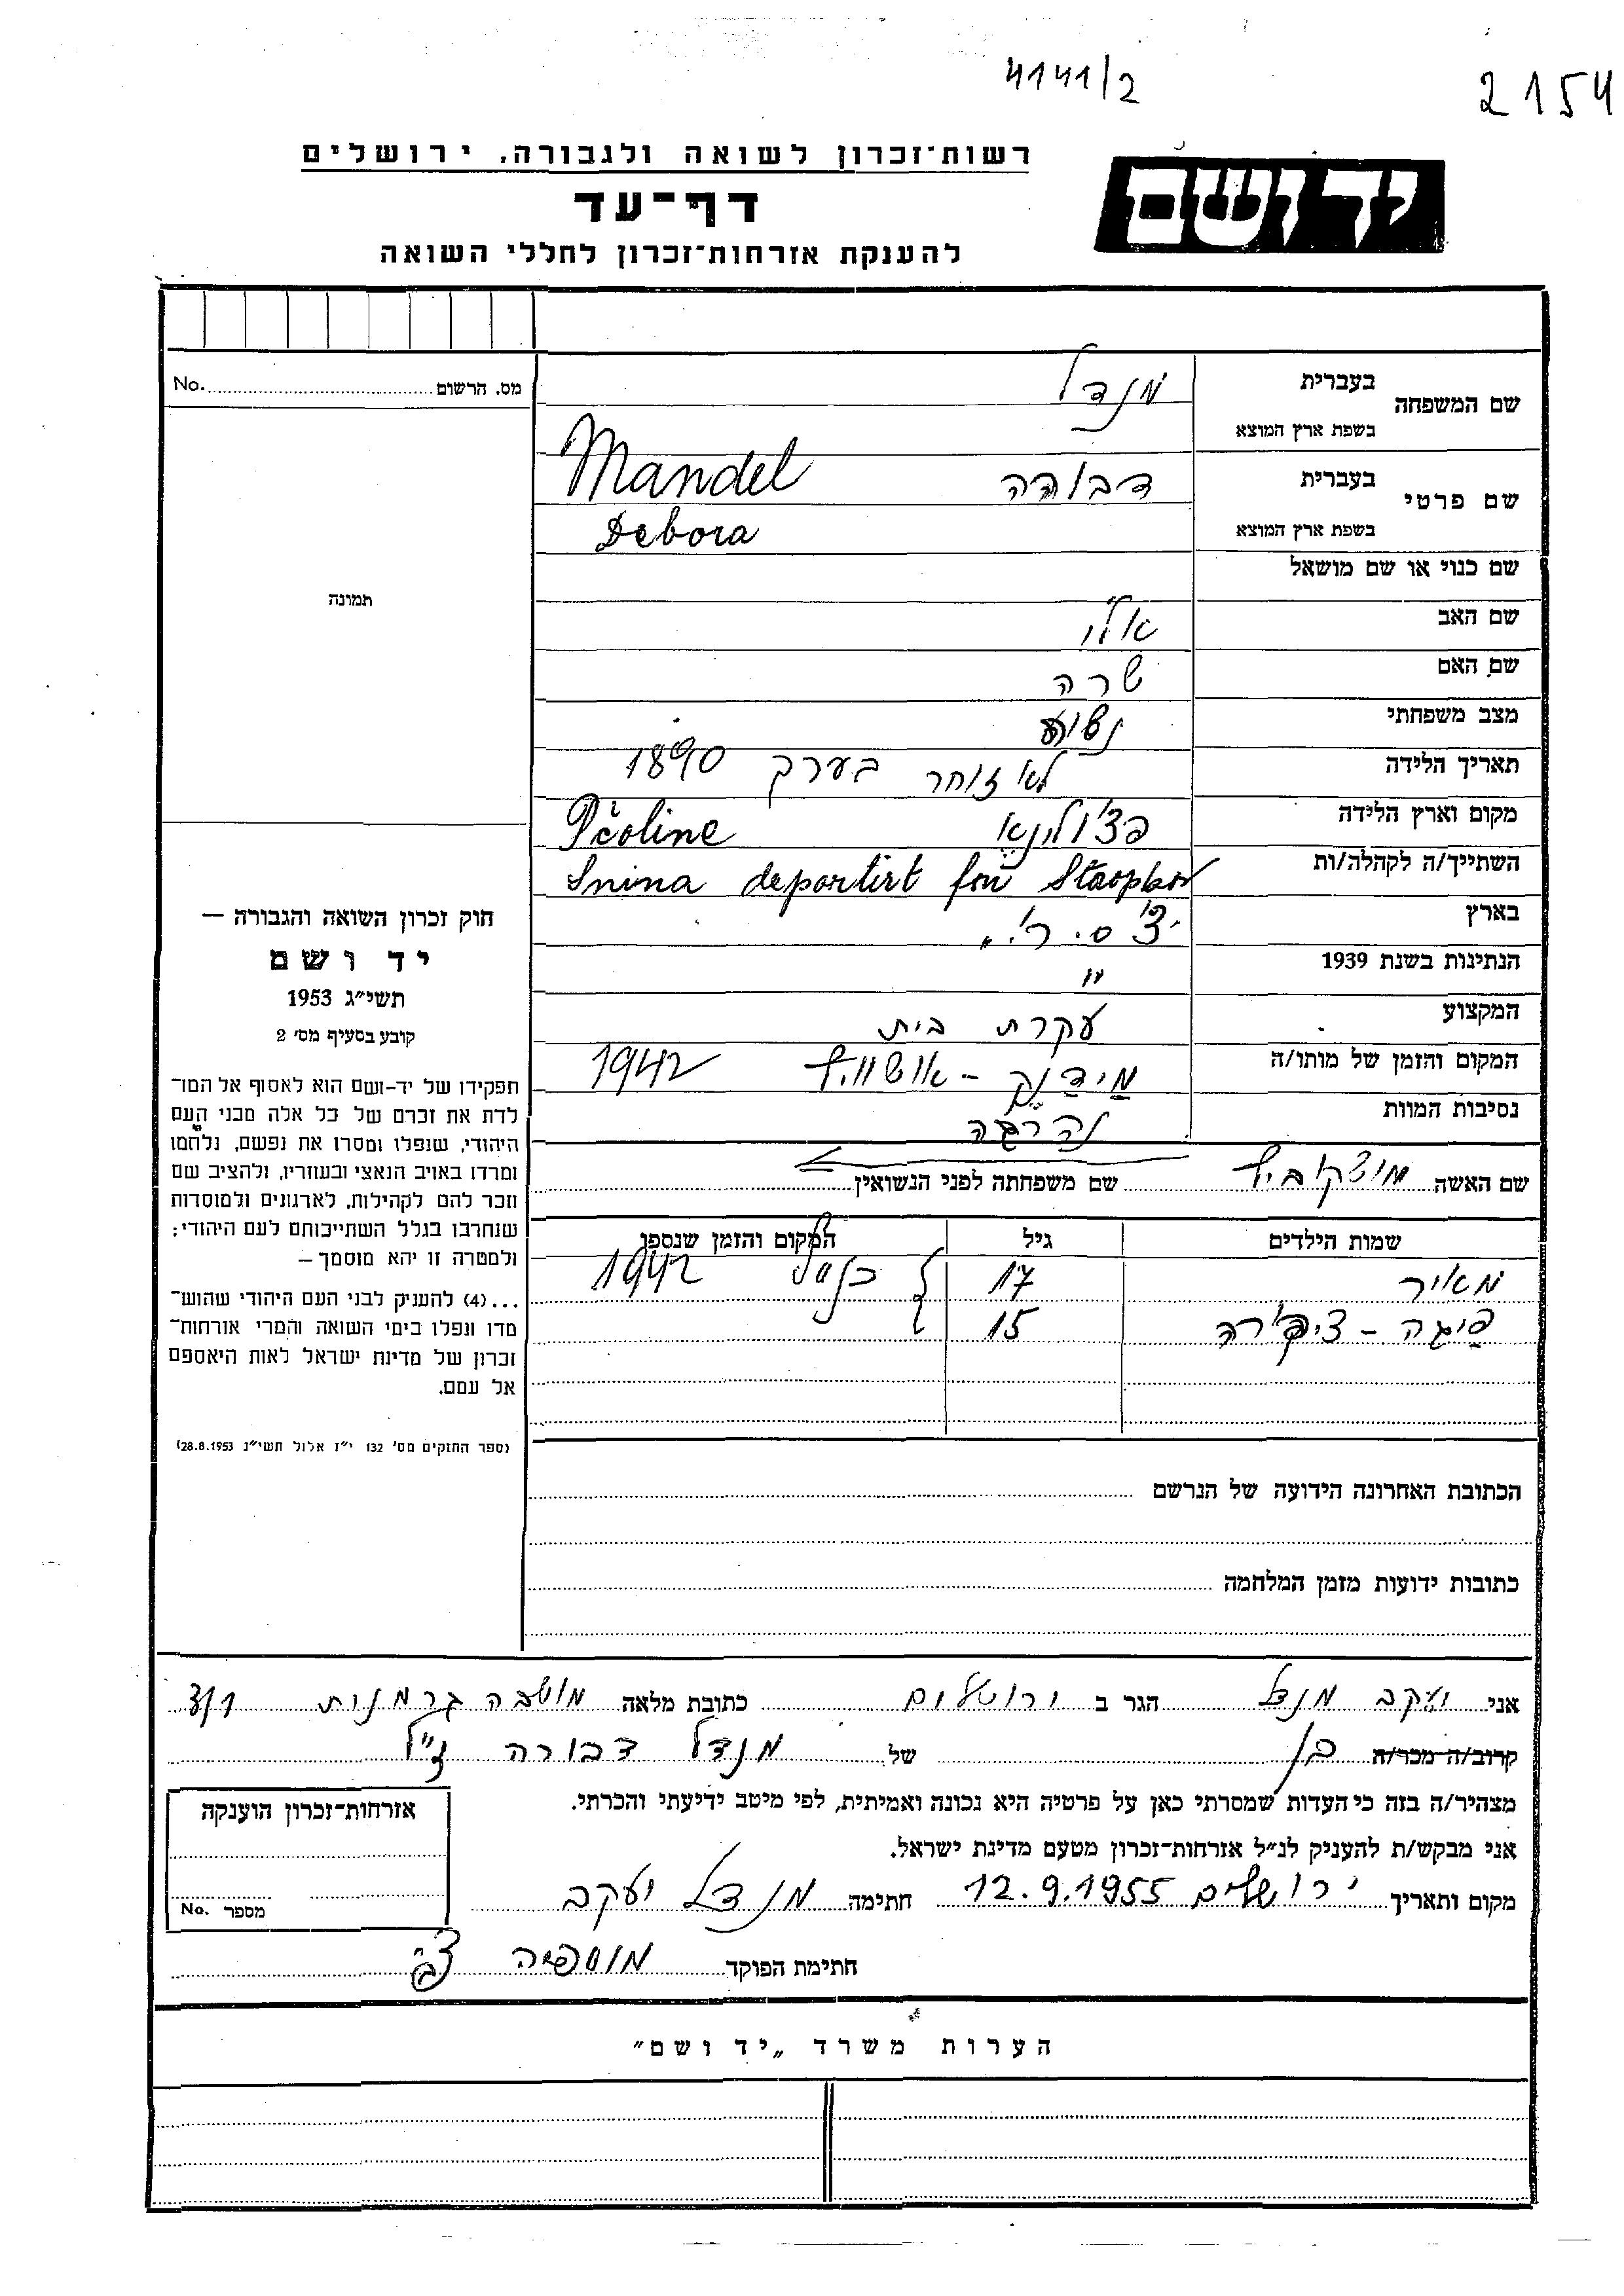 4141/2
2154
רשות־זכרון לשואה ולגבורה, ירושלים
יד ושם
דף־עד
להענקת אזרחות־זכרון לחללי השואה
שם המשפחה
בעברית מנדל
בשפת ארץ המוצא Mandel
שם פרטי
בעברית דבורה
בשפת ארץ המוצא Debora
שם כנוי או שם מושאל
שם האב אלי
שם האם שרה
מצב משפחתי
תאריך הלידה לא זוכר בערך 1890
מקום וארץ הלידה פצ'ולינא Pčoline
השתייך/ה לקהלה/ות Snina deportirt fon
בארץ צ'.ס.ר.
הנתינות בשנת 1939 "
המקצוע עקרת בית
המקום והזמן של מותו/ה מידנק - אושוויץ 1942
נסיבות המוות נהרגה
שם האשה מושקוביץ שם משפחתה לפני הנשואין
שמות הילדים גיל המקום והזמן שנספו
מאיר 17 כנ"ל 1942
פיגה - ציפורה 15
הכתובת האחרונה הידועה של הנרשם
כתובות ידועות מזמן המלחמה
מס. הרשום No.
תמונה
חוק זכרון השואה והגבורה —
יד ושם
תשי״ג 1953
קובע בסעיף מס׳ 2
תפקידו של יד-ושם הוא לאסוף אל המו־
לדת את זכרם של כל אלה מבני העם
היהודי, שנפלו ומסרו את נפשם, נלחמו
ומרדו באויב הנאצי ובעוזריו, ולהציב שם
וזכר להם לקהילות, לארגונים ולמוסדות
שנחרבו בגלל השתייכותם לעם היהודי;
ולמטרה זו יהא מוסמך —
...(4) להעניק לבני העם היהודי שהוש־
מדו ונפלו בימי השואה והמרי אזרחות־
זכרון של מדינת ישראל לאות היאספם
אל עמם.
(ספר החוקים מס׳ 132 י״ז אלול תשי״ג 28.8.1953)
אני יעקב מנדל הגר ב ירושלים כתובת מלאה מושבה גרמנית
קרוב/ה מכר/ה בן של מנדל דבורה ז"ל
מצהיר/ה בזה כי העדות שמסרתי כאן על פרטיה היא נכונה ואמיתית, לפי מיטב ידיעתי והכרתי.
אני מבקש/ת להעניק לנ״ל אזרחות־זכרון מטעם מדינת ישראל.
מקום ותאריך ירושלים 12.9.1955 חתימה מנדל יעקב
חתימת הפוקד
אזרחות־זכרון הוענקה
מספר No.
הערות משרד „יד ושם"